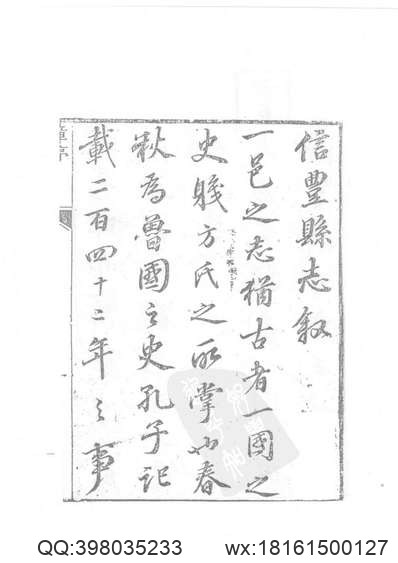 信豐縣志叙
一邑之志猶古者一國之
史職方氏之所掌如春
秋為魯國之史孔子記
載二百四十二年之事
QQ:398035233 wx:18161500127